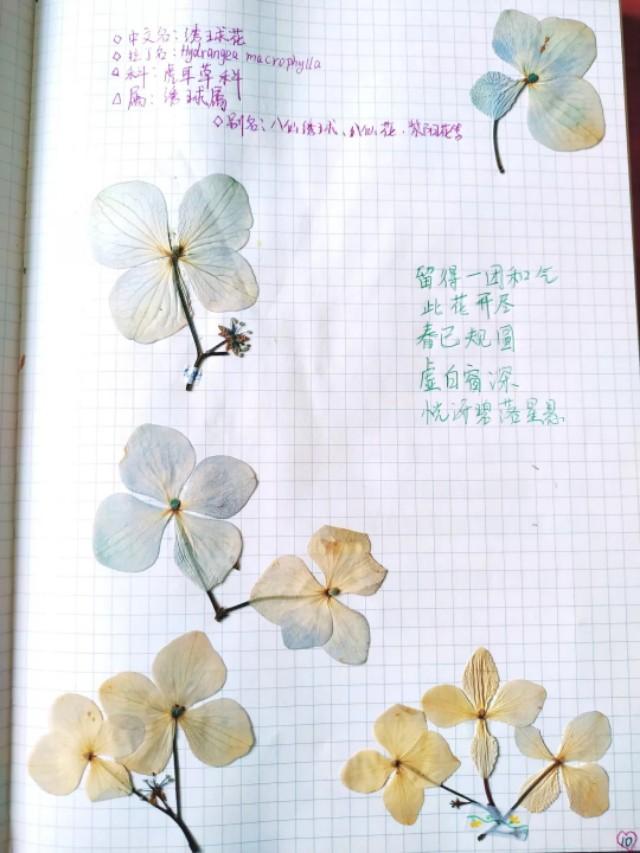 ◇中文名:绣球花
◇拉丁名:Hydrangea macrophylla
△科:虎耳草科
△属:绣球属
◇别名:八仙绣球、八仙花、紫阳花等
留得一团和气
此花开尽
春已规圆
虚白窗深
恍讶碧落星悬
10